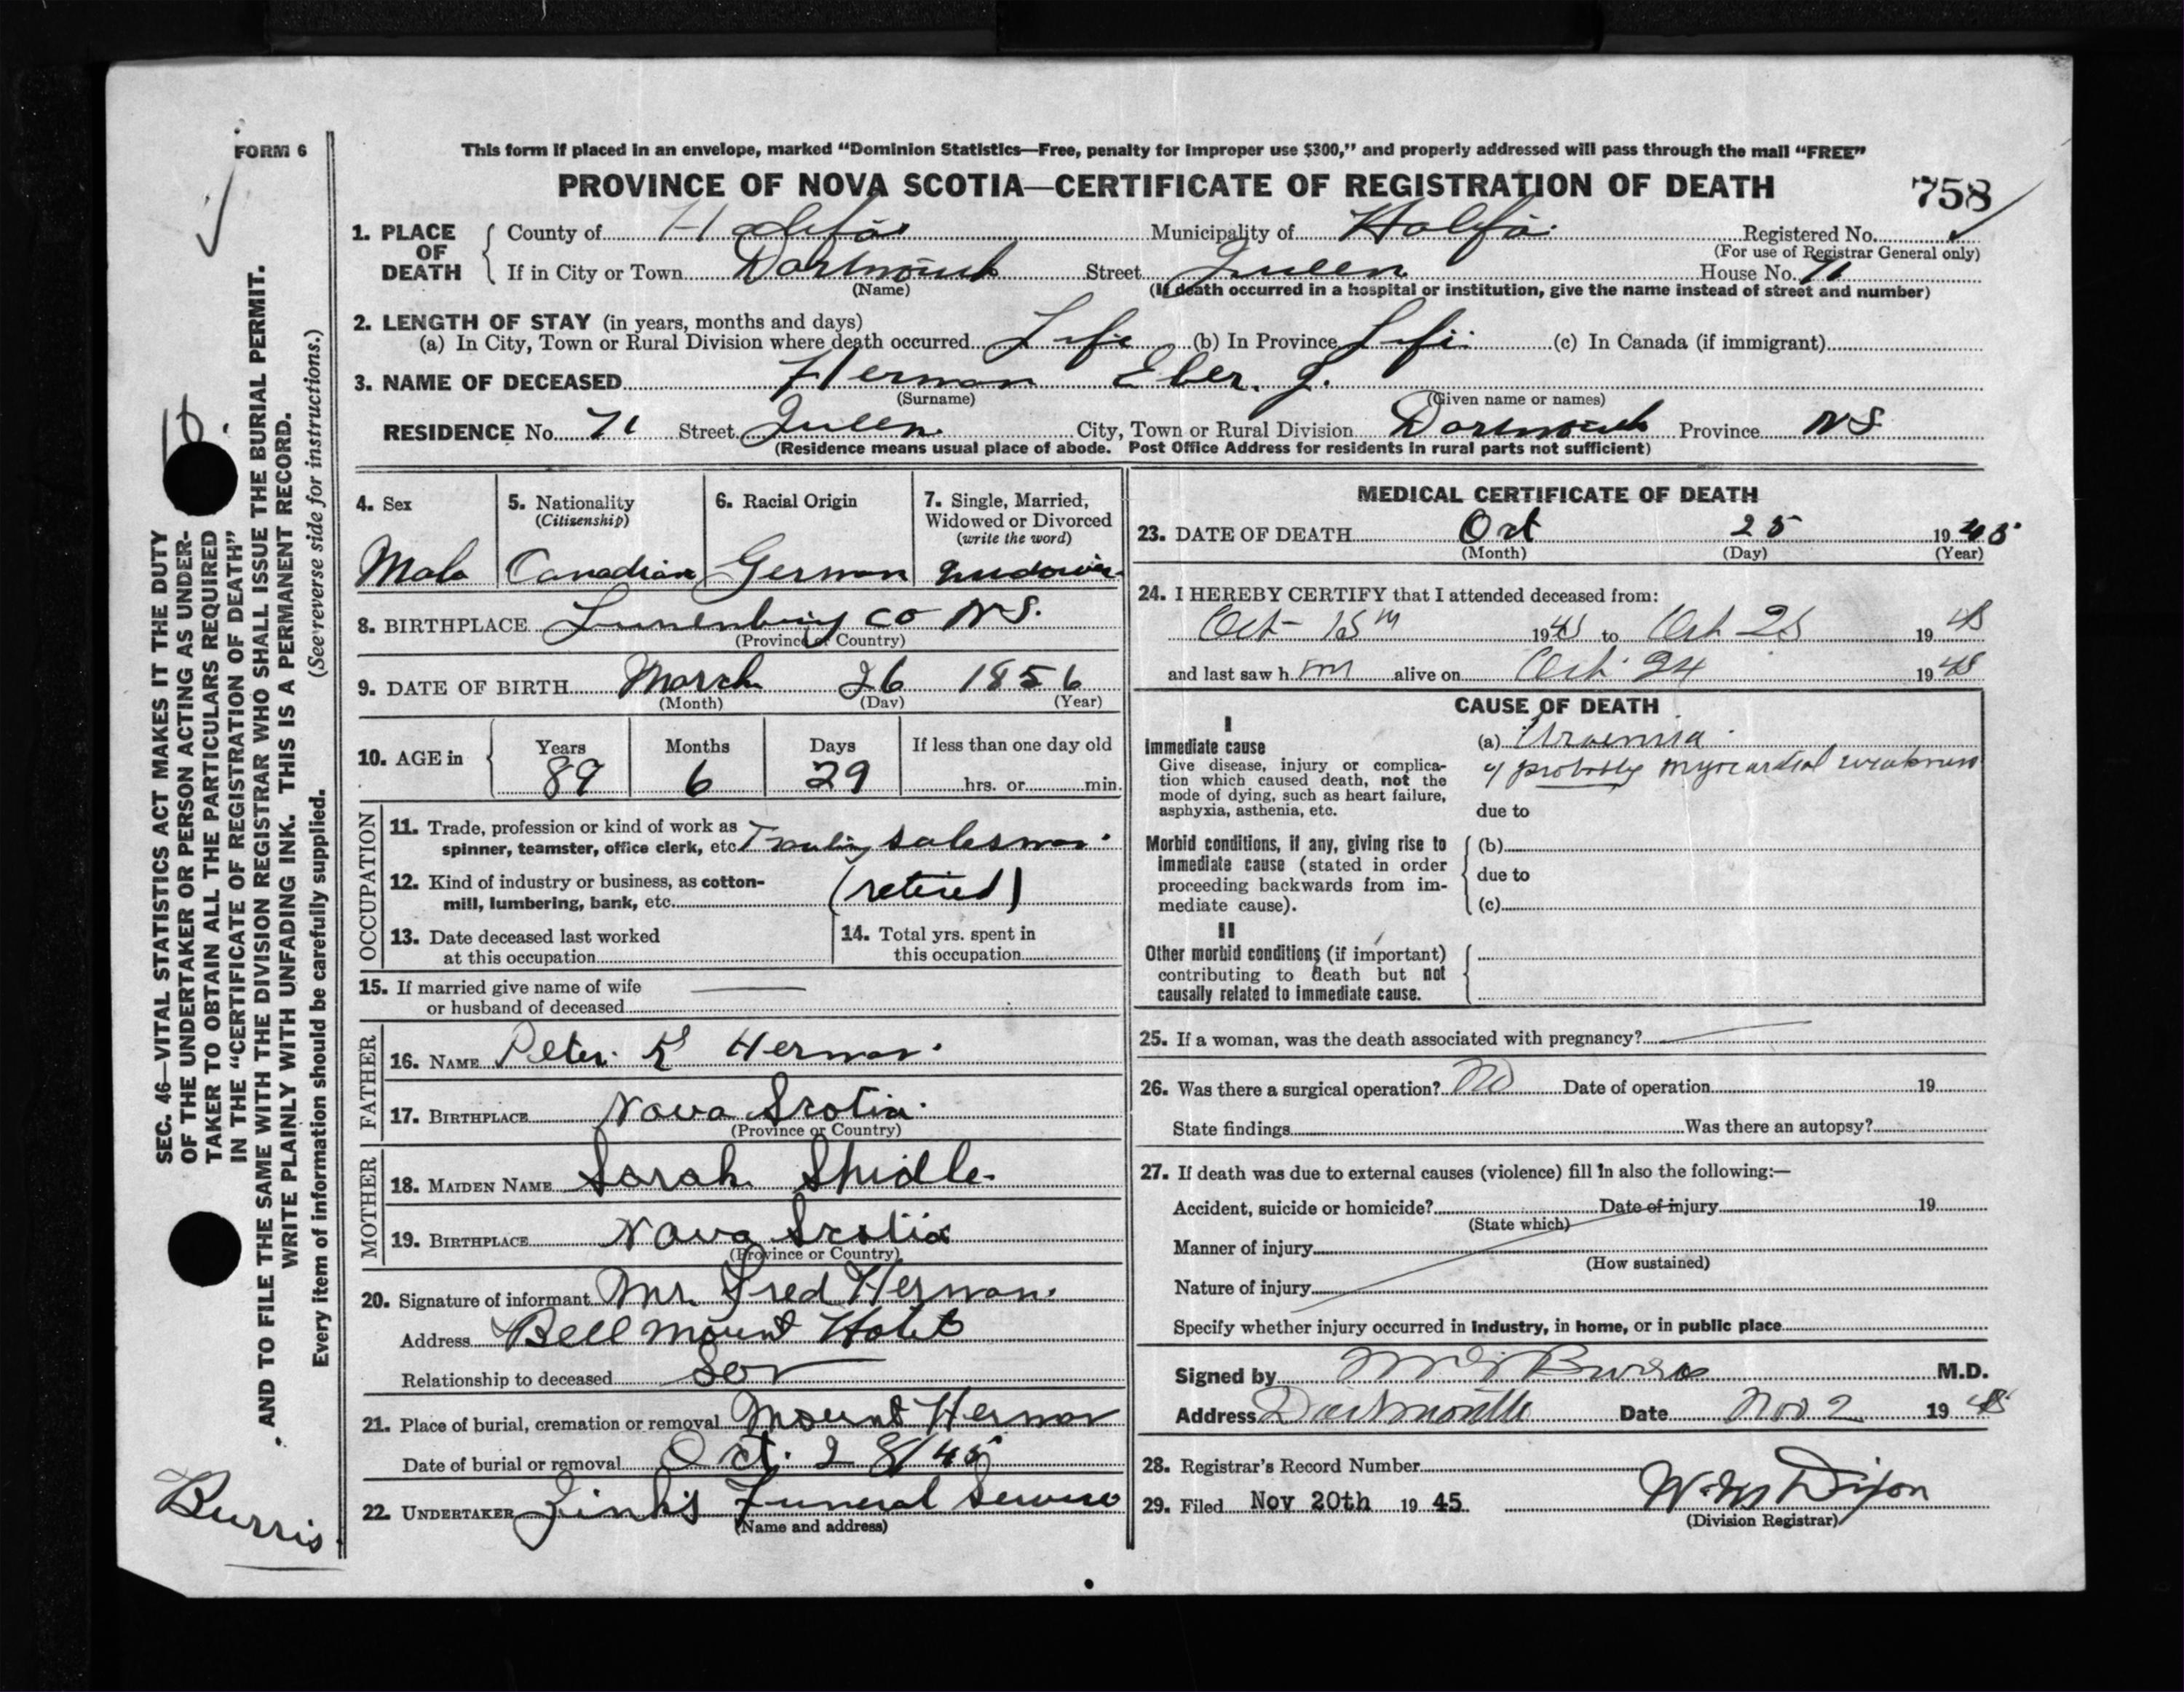 FORM 6
This form if placed in an envelope, marked “Dominion Statistics—Free, penalty for improper use $300,” and properly addressed will pass through the mail “FREE”
PROVINCE OF NOVA SCOTIA—CERTIFICATE OF REGISTRATION OF DEATH
758
1. PLACE OF DEATH
County of Halifax Municipality of Halifax Registered No.
(For use of Registrar General only)
If in City or Town Dartmouth Street Queen House No. 71
(Name) (If death occurred in a hospital or institution, give the name instead of street and number)
2. LENGTH OF STAY (in years, months and days)
(a) In City, Town or Rural Division where death occurred Life (b) In Province Life (c) In Canada (if immigrant)
3. NAME OF DECEASED Herman Eber. J.
(Surname) (Given name or names)
RESIDENCE No. 71 Street Queen City, Town or Rural Division Dartmouth Province NS
(Residence means usual place of abode. Post Office Address for residents in rural parts not sufficient)
4. Sex
Male
5. Nationality
(Citizenship)
Canadian
6. Racial Origin
German
7. Single, Married,
Widowed or Divorced
(write the word)
8. BIRTHPLACE Lunenburg Co N.S.
(Province or Country)
9. DATE OF BIRTH March 26 1856
(Month) (Day) (Year)
10. AGE in
Years Months Days If less than one day old
89 6 29 hrs. or min.
OCCUPATION
11. Trade, profession or kind of work as
spinner, teamster, office clerk, etc. salesman
12. Kind of industry or business, as cotton-
mill, lumbering, bank, etc. (retired)
13. Date deceased last worked
at this occupation
14. Total yrs. spent in
this occupation
15. If married give name of wife
or husband of deceased
FATHER
16. NAME Peter Herman
17. BIRTHPLACE Nova Scotia
(Province or Country)
MOTHER
18. MAIDEN NAME Sarah Shidle
19. BIRTHPLACE Nova Scotia
(Province or Country)
20. Signature of informant Mr. Fred Herman
Address Bellmount Hotel
Relationship to deceased Son
21. Place of burial, cremation or removal Mount Hermon
Date of burial or removal Oct. 28/45
22. UNDERTAKER Zink's Funeral Service
(Name and address)
MEDICAL CERTIFICATE OF DEATH
23. DATE OF DEATH Oct 25 1945
(Month) (Day) (Year)
24. I HEREBY CERTIFY that I attended deceased from:
Oct 15th 1945 to Oct 25 1945
and last saw him alive on Oct 24 1945
CAUSE OF DEATH
I
Immediate cause
Give disease, injury or complica-
tion which caused death, not the
mode of dying, such as heart failure,
asphyxia, asthenia, etc.
(a) Uraemia
probably myocardial weakness
due to
Morbid conditions, if any, giving rise to
immediate cause (stated in order
proceeding backwards from im-
mediate cause).
(b)
due to
(c)
II
Other morbid conditions (if important)
contributing to death but not
causally related to immediate cause.
25. If a woman, was the death associated with pregnancy?
26. Was there a surgical operation? No Date of operation 19
State findings Was there an autopsy?
27. If death was due to external causes (violence) fill in also the following:—
Accident, suicide or homicide? Date of injury 19
(State which)
Manner of injury
(How sustained)
Nature of injury
Specify whether injury occurred in industry, in home, or in public place
Signed by Burris M.D.
Address Dartmouth Date Nov 2 1945
28. Registrar's Record Number
29. Filed Nov 20th 1945. Dixon
(Division Registrar)
SEC. 46—VITAL STATISTICS ACT MAKES IT THE DUTY
OF THE UNDERTAKER OR PERSON ACTING AS UNDER-
TAKER TO OBTAIN ALL THE PARTICULARS REQUIRED
IN THE “CERTIFICATE OF REGISTRATION OF DEATH”
AND TO FILE THE SAME WITH THE DIVISION REGISTRAR WHO SHALL ISSUE THE BURIAL PERMIT.
WRITE PLAINLY WITH UNFADING INK. THIS IS A PERMANENT RECORD.
Every item of information should be carefully supplied. (See reverse side for instructions.)
Burris